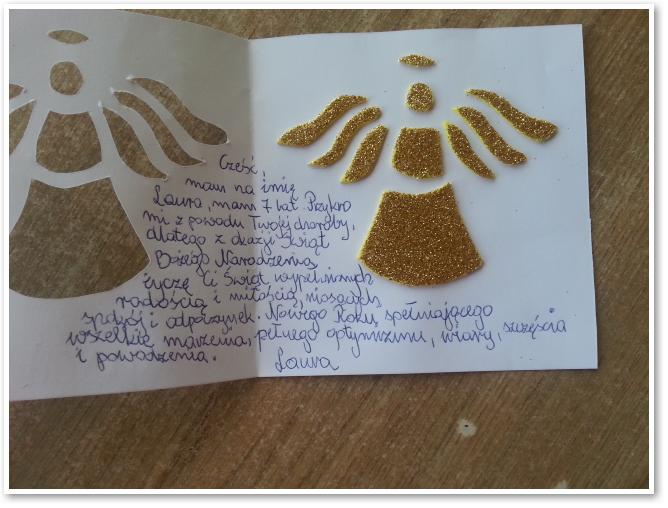 Cześć,
mam na imię
Laura, mam 7 lat. Przykro
mi z powodu Twojej choroby,
dlatego z okazji Świąt
Bożego Narodzenia
życzę Ci Świąt wypełnionych
radością i miłością, niosących
spokój i odpoczynek. Nowego Roku spełniającego
wszelkie marzenia, pełnego optymizmu, wiary, szczęścia
i powodzenia.
Laura